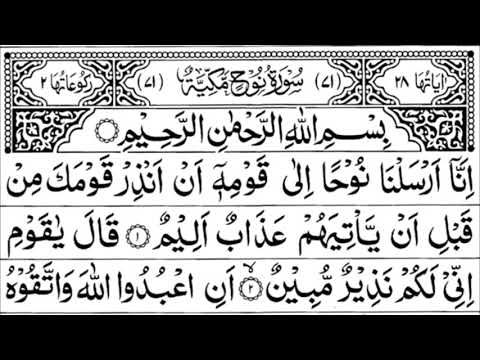 اٰيَاتُهَا ٢٨ (٧١) سُوْرَةُ نُوْحٍ مَّكِّيَّةٌ (٧١) رُكُوْعَاتُهَا ٢
بِسْمِ اللّٰهِ الرَّحْمٰنِ الرَّحِيْمِ
اِنَّاۤ اَرْسَلْنَا نُوْحًا اِلٰى قَوْمِهٖۤ اَنْ اَنْذِرْ قَوْمَكَ مِنْ
قَبْلِ اَنْ يَّاْتِيَهُمْ عَذَابٌ اَلِيْمٌ ١ قَالَ يٰقَوْمِ
اِنِّىْ لَكُمْ نَذِيْرٌ مُّبِيْنٌ ۙ ٢ اَنِ اعْبُدُوا اللّٰهَ وَاتَّقُوْهُ